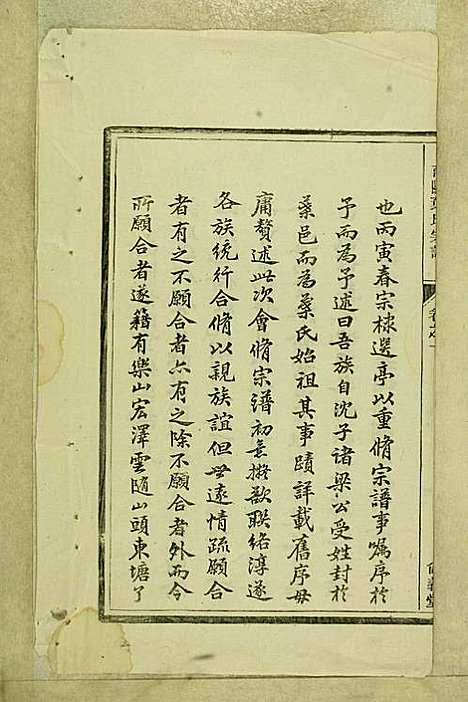 也丙寅春宗棣選亭以重脩宗譜事囑序於
予而為予述曰吾族自沈子諸梁公受姓封於
葉邑而為葉氏始祖其事蹟詳載舊序毋
庸贅述此次會脩宗譜初無擬欵聯絡淳遂
各族統行合脩以親族誼但世遠情疏願合
者有之不願合者亦有之除不願合者外而今
所願合者遂籍有樂山宏澤雲隨山頭東塘了